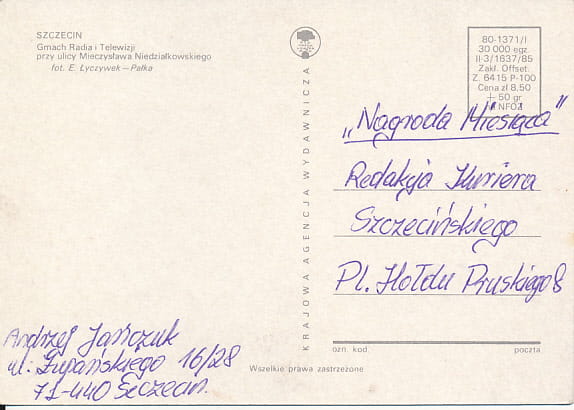 SZCZECIN
Gmach Radia i Telewizji
przy ulicy Mieczysława Niedziałkowskiego
fot. E. Łyczywek – Pałka
KRAJOWA AGENCJA WYDAWNICZA
80-1371/I
30 000 egz.
II-3/1637/85
Zakł. Offset.
Z. 6415 P-100
Cena zł 8,50
+ 50 gr
NFOZ
„Nagroda Miesiąca"
Redakcja Kuriera
Szczecińskiego
Pl. Hołdu Pruskiego 8
Andrzej Jańczuk
ul: Żupańskiego 16/28
71-440 Szczecin.
ozn. kod. poczta
Wszelkie prawa zastrzeżone